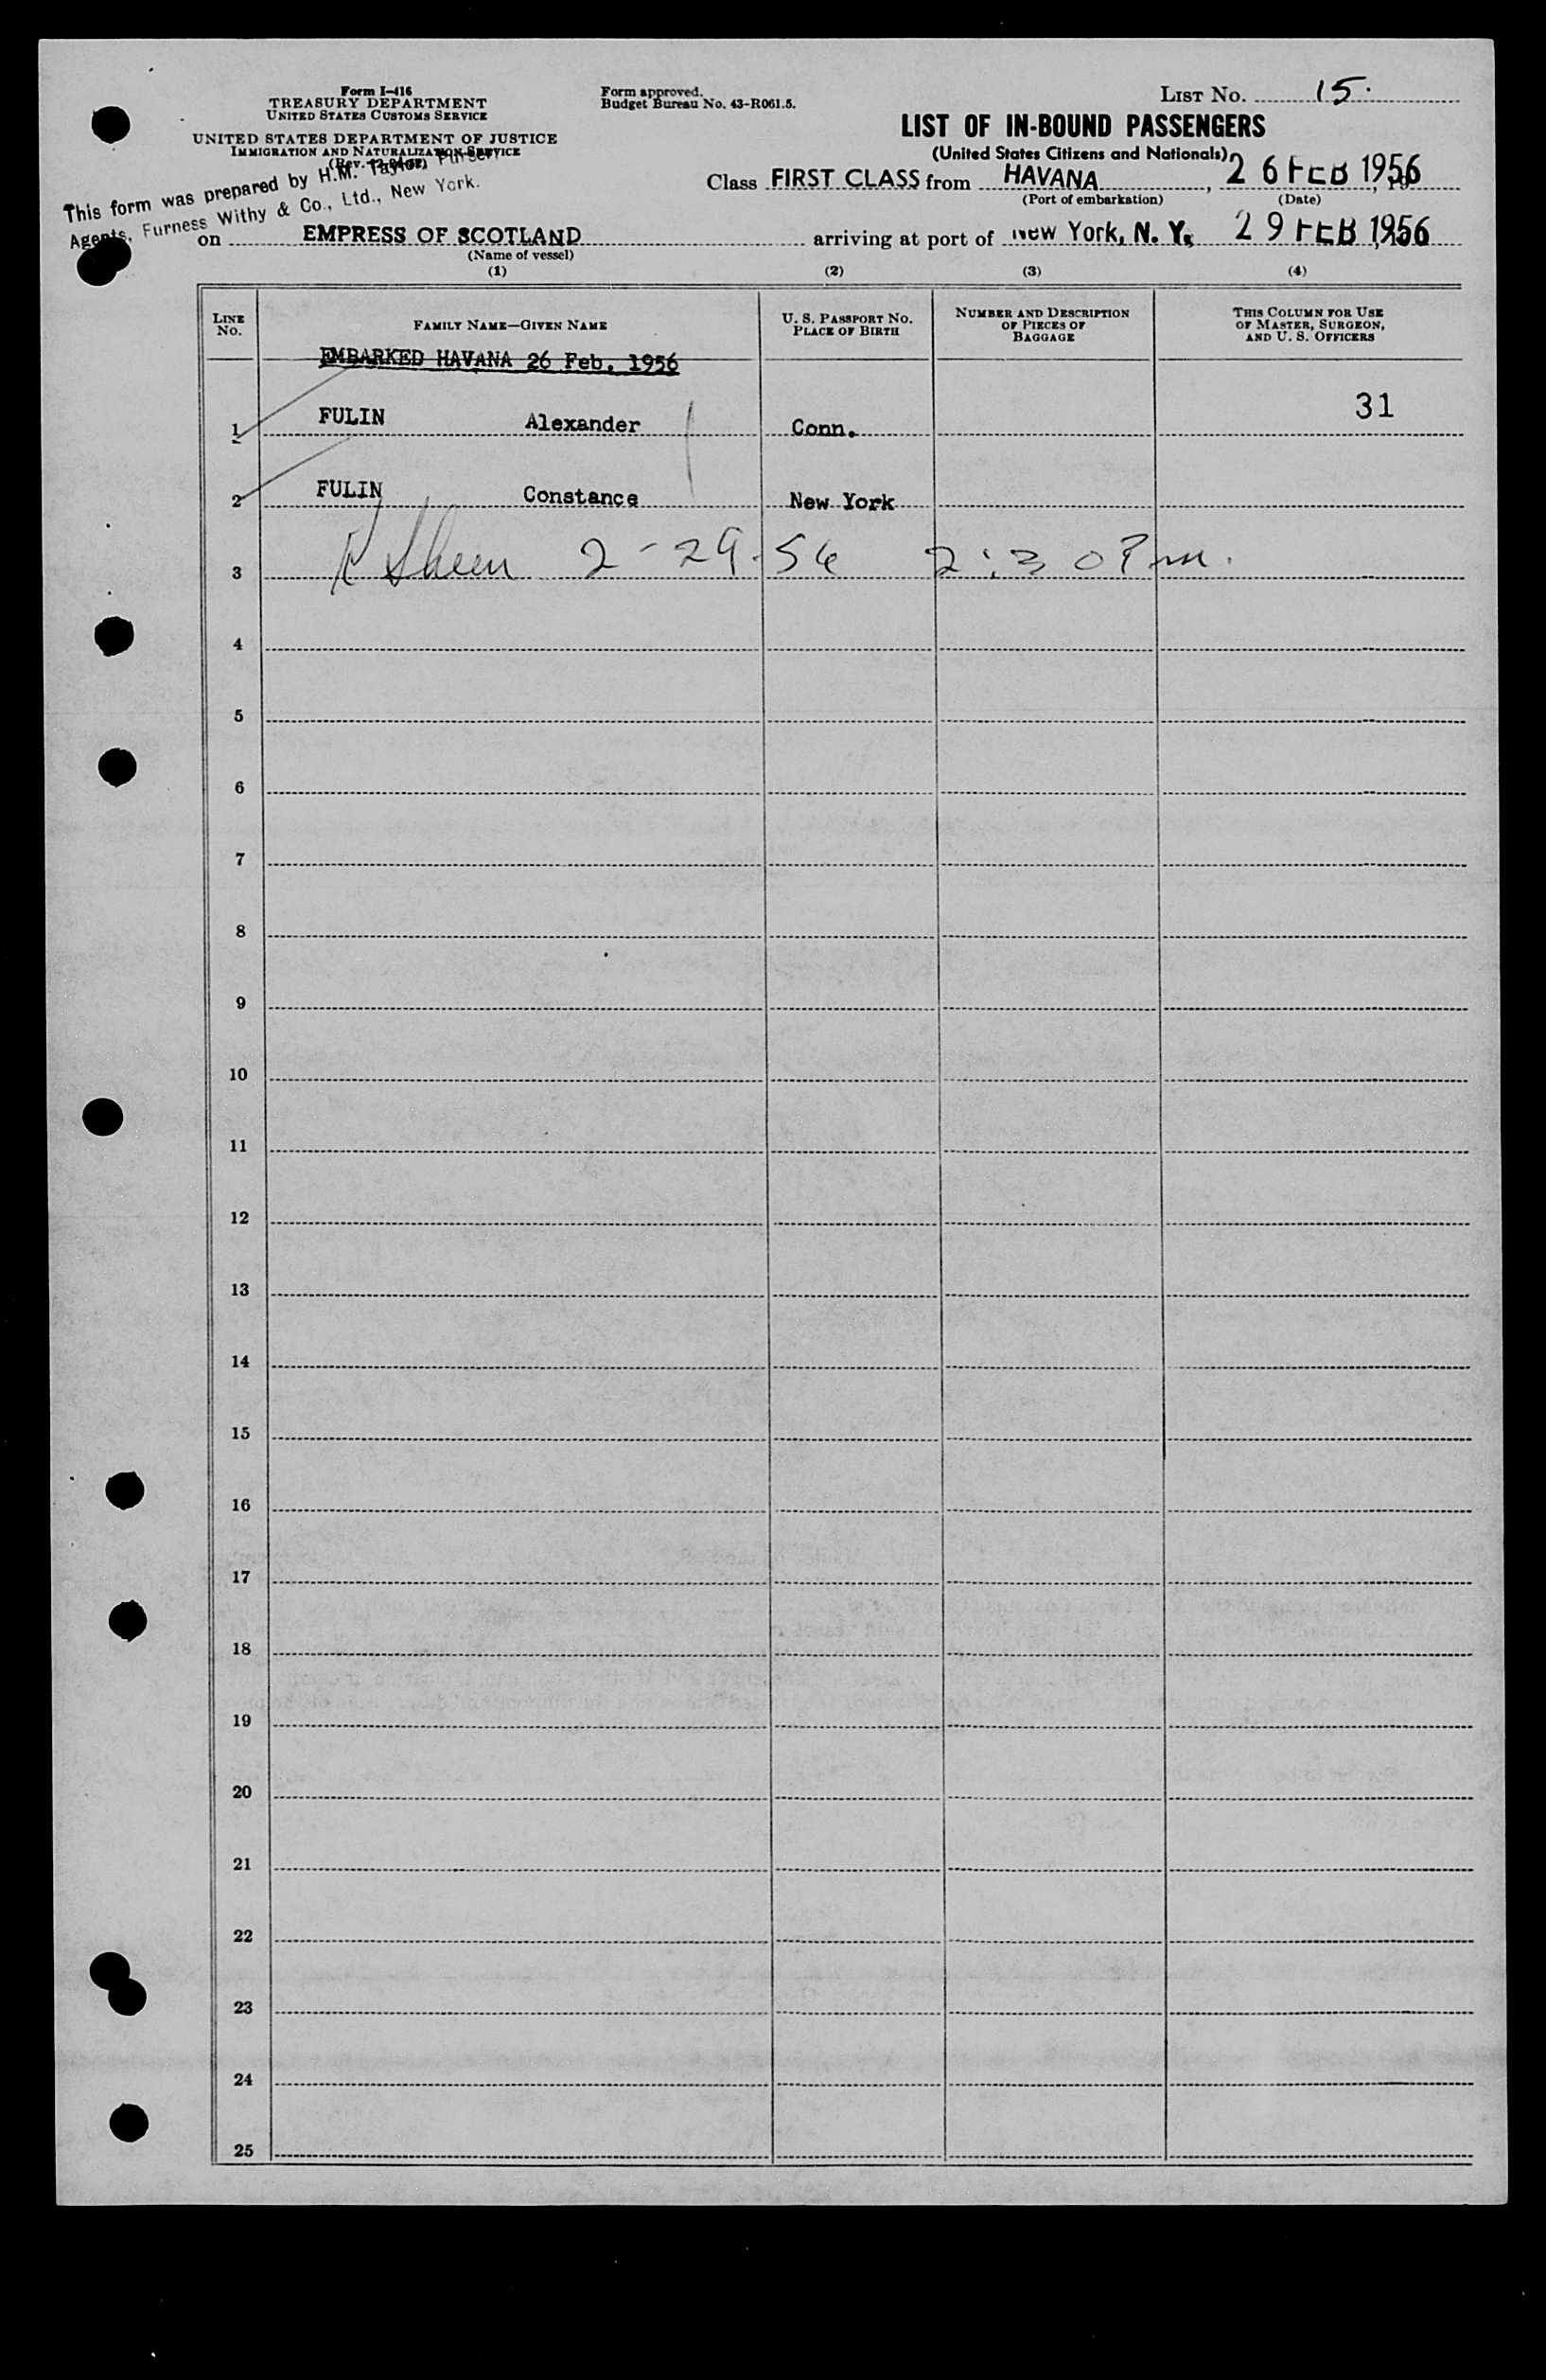 Form I-416
TREASURY DEPARTMENT
UNITED STATES CUSTOMS SERVICE
UNITED STATES DEPARTMENT OF JUSTICE
IMMIGRATION AND NATURALIZATION SERVICE
This form was prepared by H.M. Taylor, Purser,
Agents, Furness Withy & Co., Ltd., New York.
Form approved.
Budget Bureau No. 43-R061.5.
LIST No. 15.
LIST OF IN-BOUND PASSENGERS
(United States Citizens and Nationals)
Class FIRST CLASS from HAVANA, 26 FEB 1956
(Port of embarkation) (Date)
on EMPRESS OF SCOTLAND arriving at port of New York, N. Y., 29 FEB 1956
(Name of vessel)
(1) (2) (3) (4)
LINE No. FAMILY NAME—GIVEN NAME U. S. PASSPORT No. PLACE OF BIRTH NUMBER AND DESCRIPTION OF PIECES OF BAGGAGE THIS COLUMN FOR USE OF MASTER, SURGEON, AND U. S. OFFICERS
EMBARKED HAVANA 26 Feb. 1956
1 FULIN Alexander Conn. 31
2 FULIN Constance New York
3 Sheen 2-29-56 2:30 Pm.
4
5
6
7
8
9
10
11
12
13
14
15
16
17
18
19
20
21
22
23
24
25